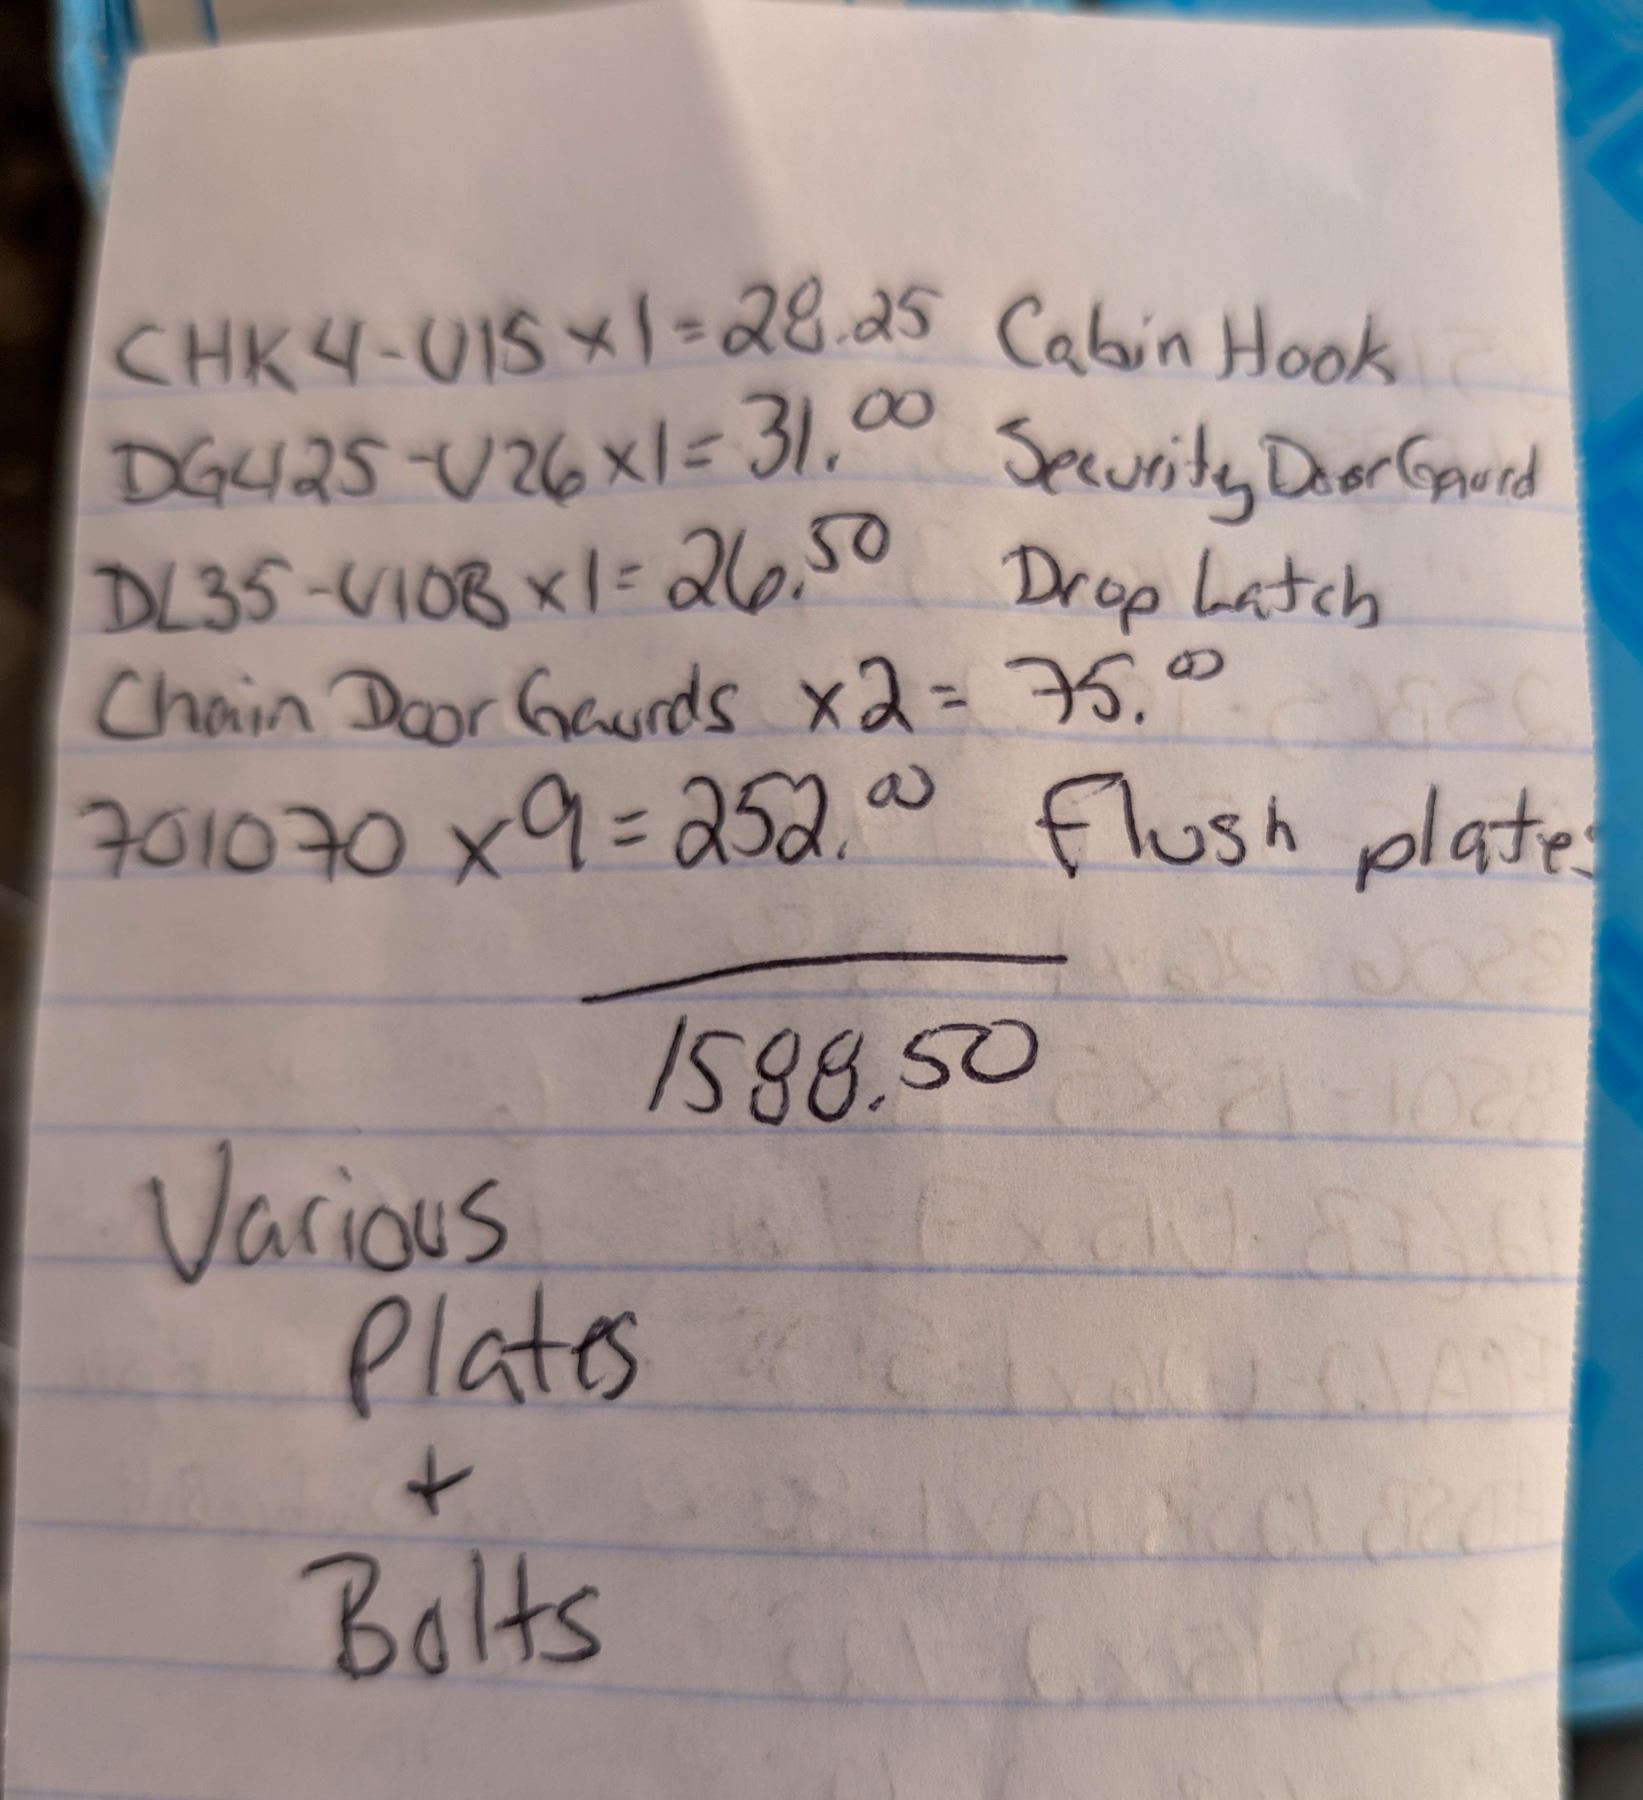 CHK4-U15 x1=28.25 Cabin Hook
DG425-U26 x1=31.00 Security Door Gaurd
DL35-U10B x1=26.50 Drop Latch
Chain Door Gaurds x2= 75.00
701070 x9=252.00 Flush plates
1588.50
Various
Plates
+
Bolts